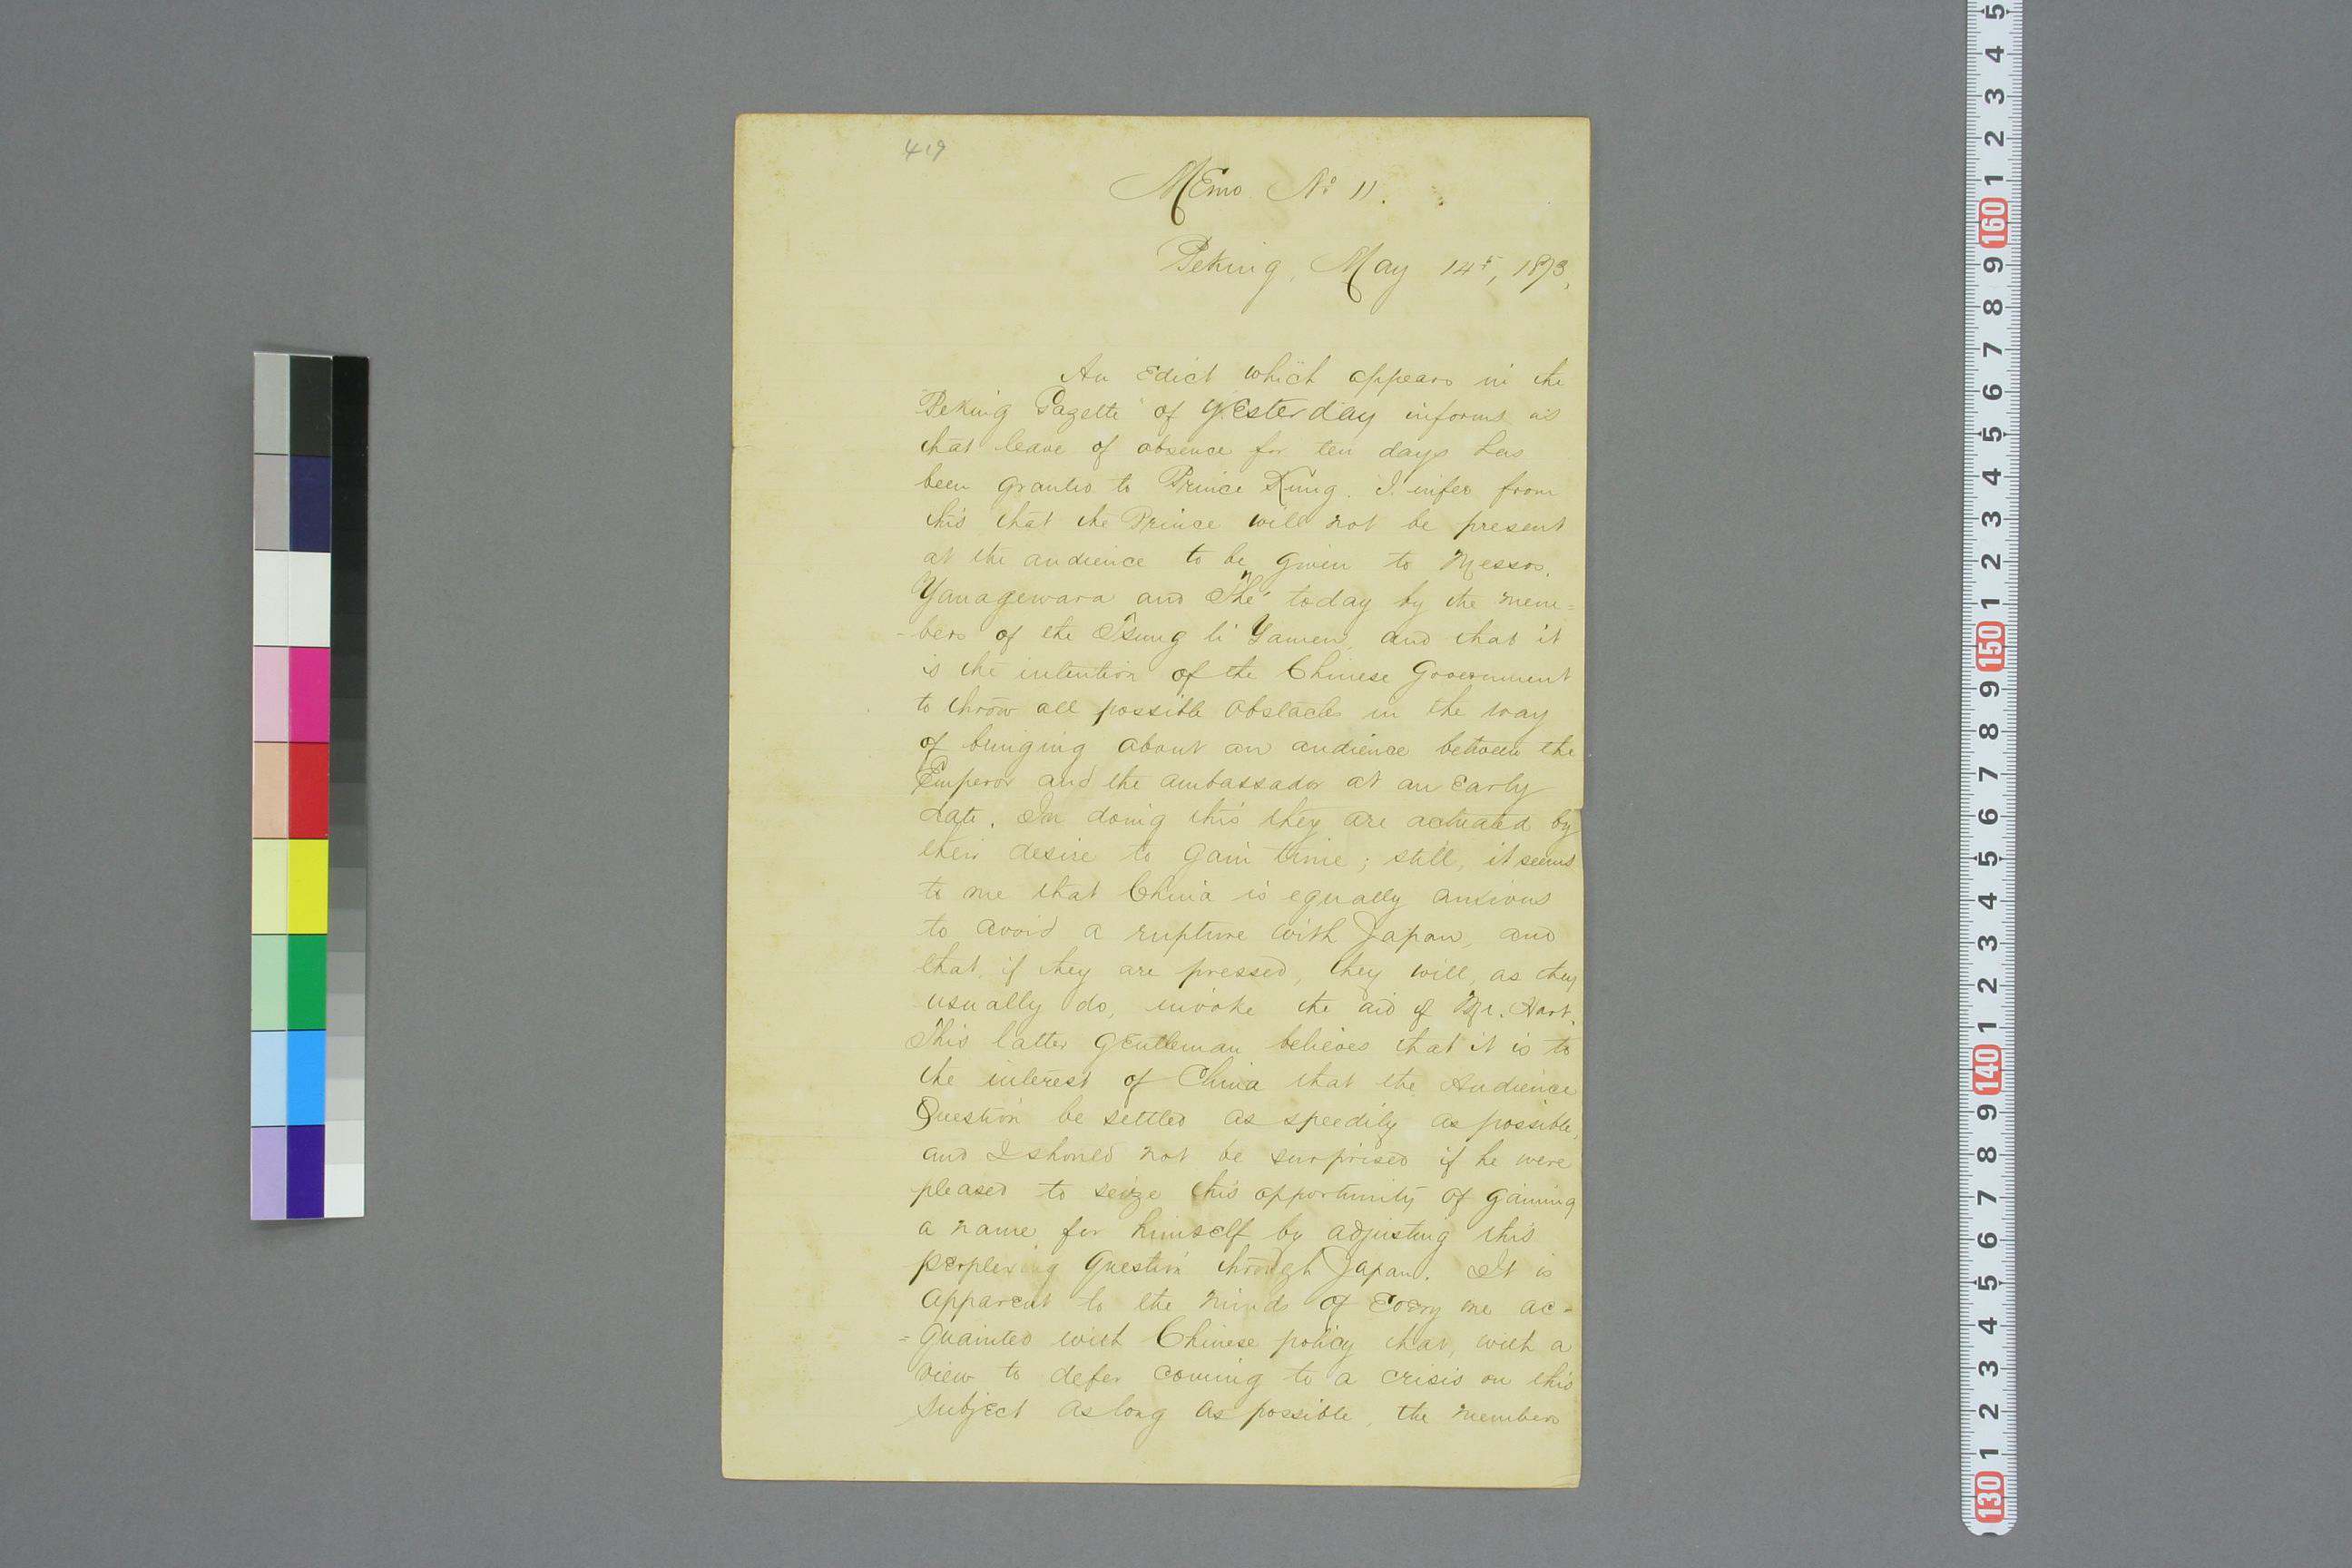 419
Memo No 11.
Peking, May 14th, 1873.
An Edict which appears in the
"Peking Gazette" of yesterday informs us
that leave of absence for ten days has
been granted to Prince Kung. I infer from
this that the Prince will not be present
at the audience to be given to Messrs.
Yanagewara and The' today by the mem=
-bers of the Tsung li Yamen, and that it
is the intention of the Chinese Government
to throw all possible obstacles in the way
of bringing about an audience between the
Emperor and the ambassador at an early
date. In doing this they are actuated by
their desire to gain time; still, it seems
to me that China is equally anxious
to avoid a rupture with Japan, and
that, if they are pressed, they will, as they
usually do, invoke the aid of Mr. Hart.
This latter gentleman believes that it is to
the interest of China that the Audience
Question be settled as speedily as possible,
and I should not be surprised if he were
pleased to seize this opportunity of gaining
a name for himself by adjusting this
perplexing question through Japan. It is
apparent to the minds of every one ac=
=quainted with Chinese policy that, with a
view to defer coming to a crisis on this
subject as long as possible, the members
5 4 3 2 1 160 9 8 7 6 5 4 3 2 1 150 9 8 7 6 5 4 3 2 1 140 9 8 7 6 5 4 3 2 1 130